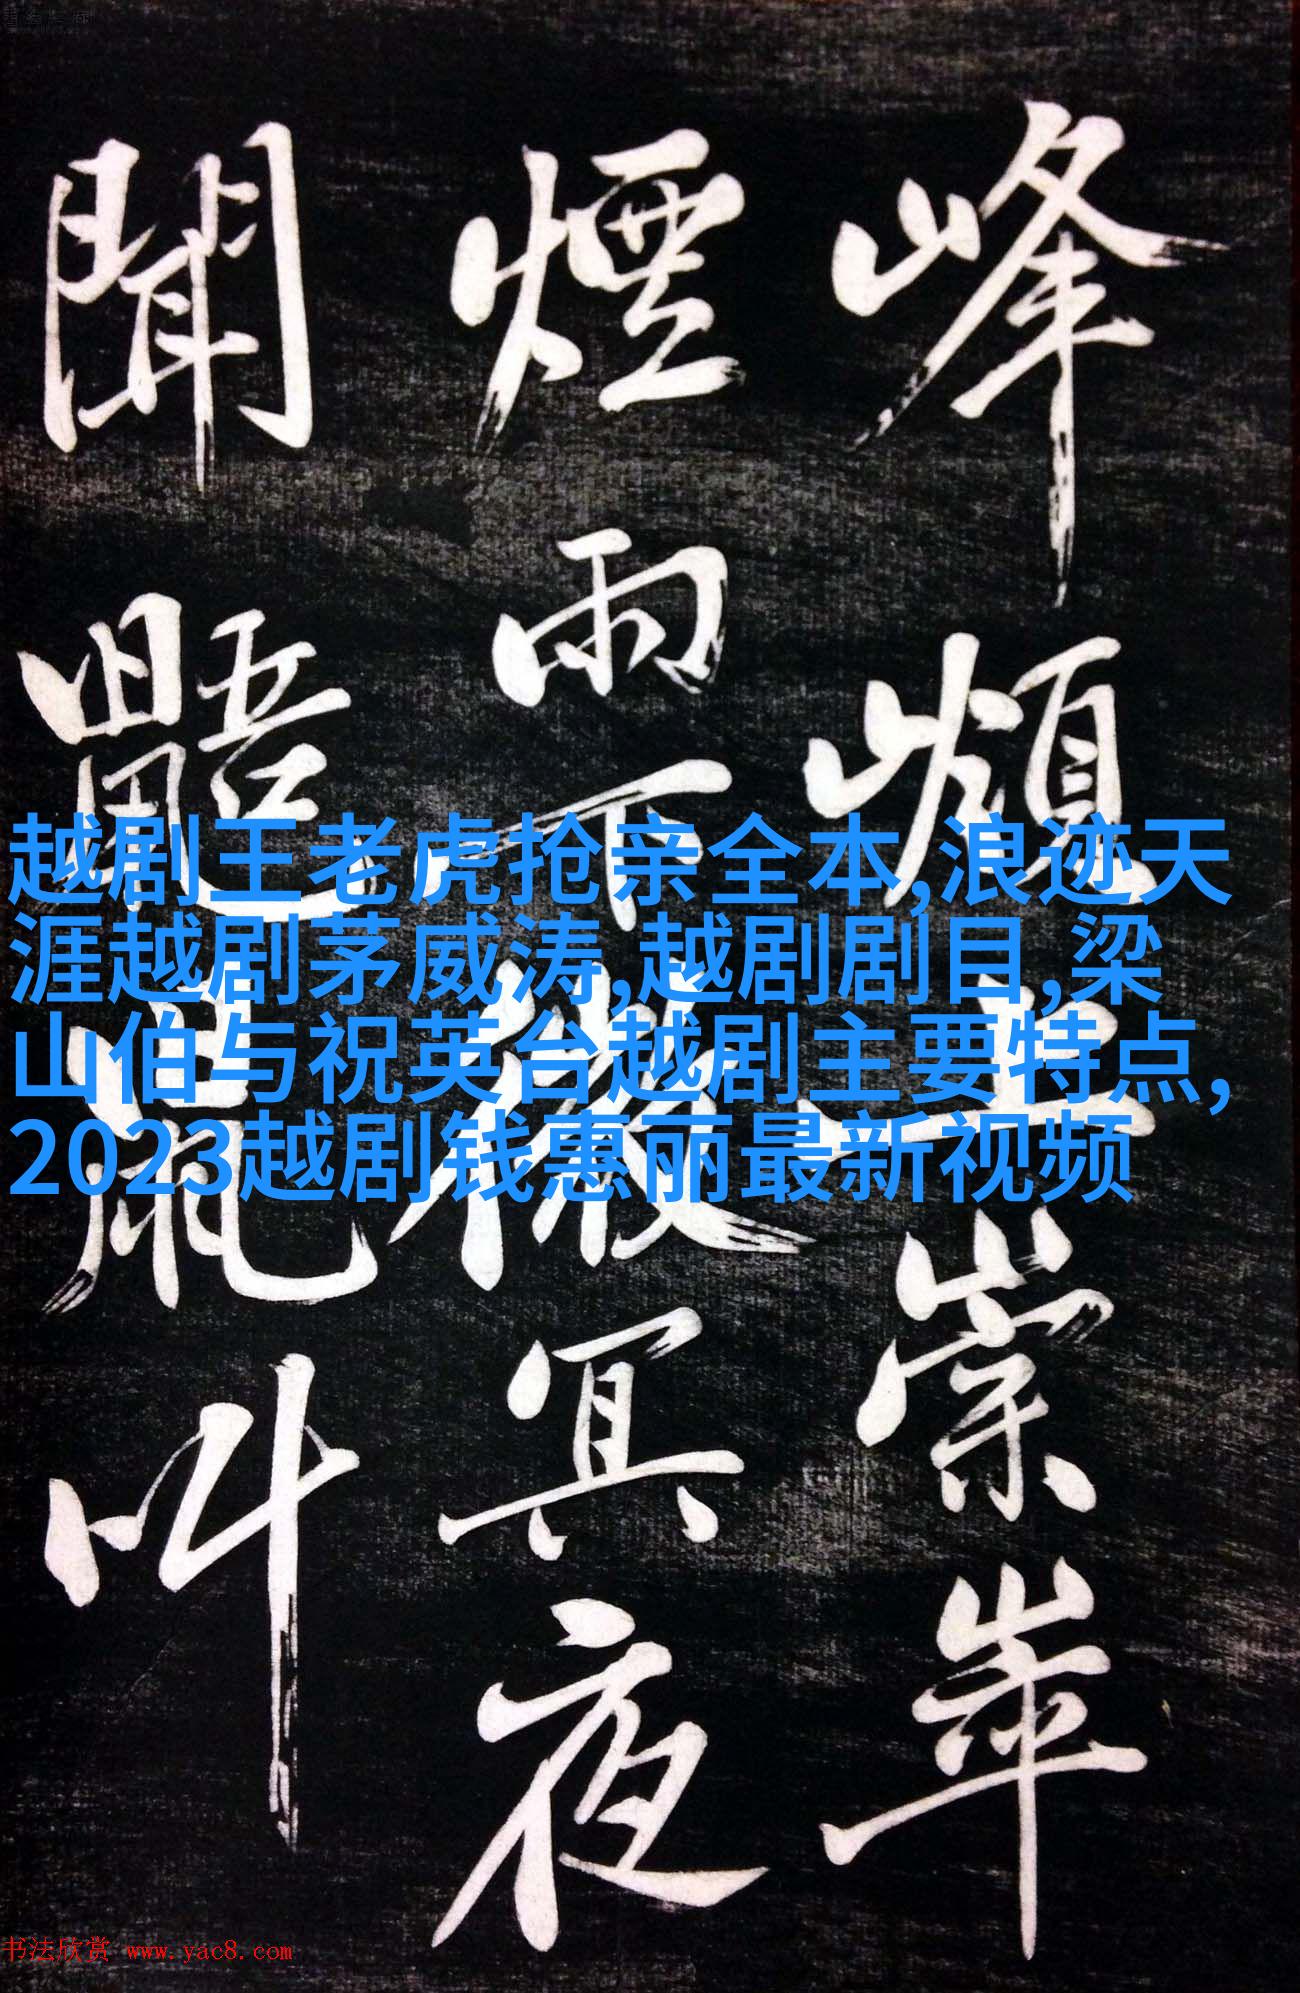 峰嵿上崇崒
煙雨下微冥夜
聞鼯鼠叫
越剧王老虎抢亲全本,浪迹天
涯越剧茅威涛,越剧剧目,梁
山伯与祝英台越剧主要特点,
2023越剧钱惠丽最新视频
书法欣赏 www.yac8.com